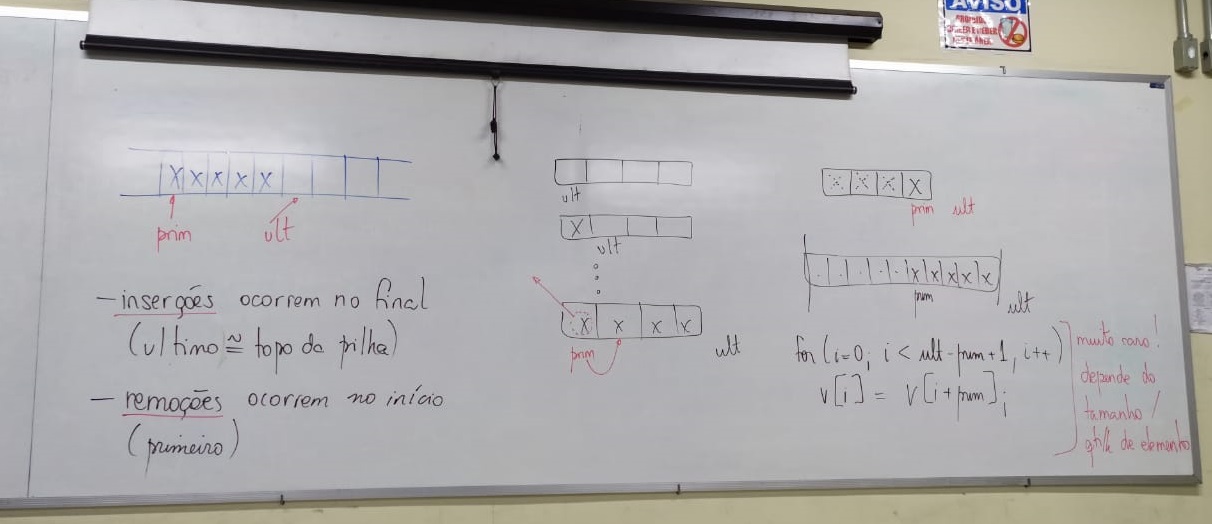 AVISO
PROIBIDO
COMER E BEBER
NESTA ÁREA
X X X X X
prim
ult
- inserções ocorrem no final
(ultimo ≅ topo da pilha)
- remoções ocorrem no início
(primeiro)
ult
X
ult
X X X X
prim
ult
X X X X
prim ult
X X X X X
prim
ult
for(i=0; i < ult-prim+1, i++)
v[i] = v[i+prim];
muito caro!
depende do
tamanho /
qtde de elemento